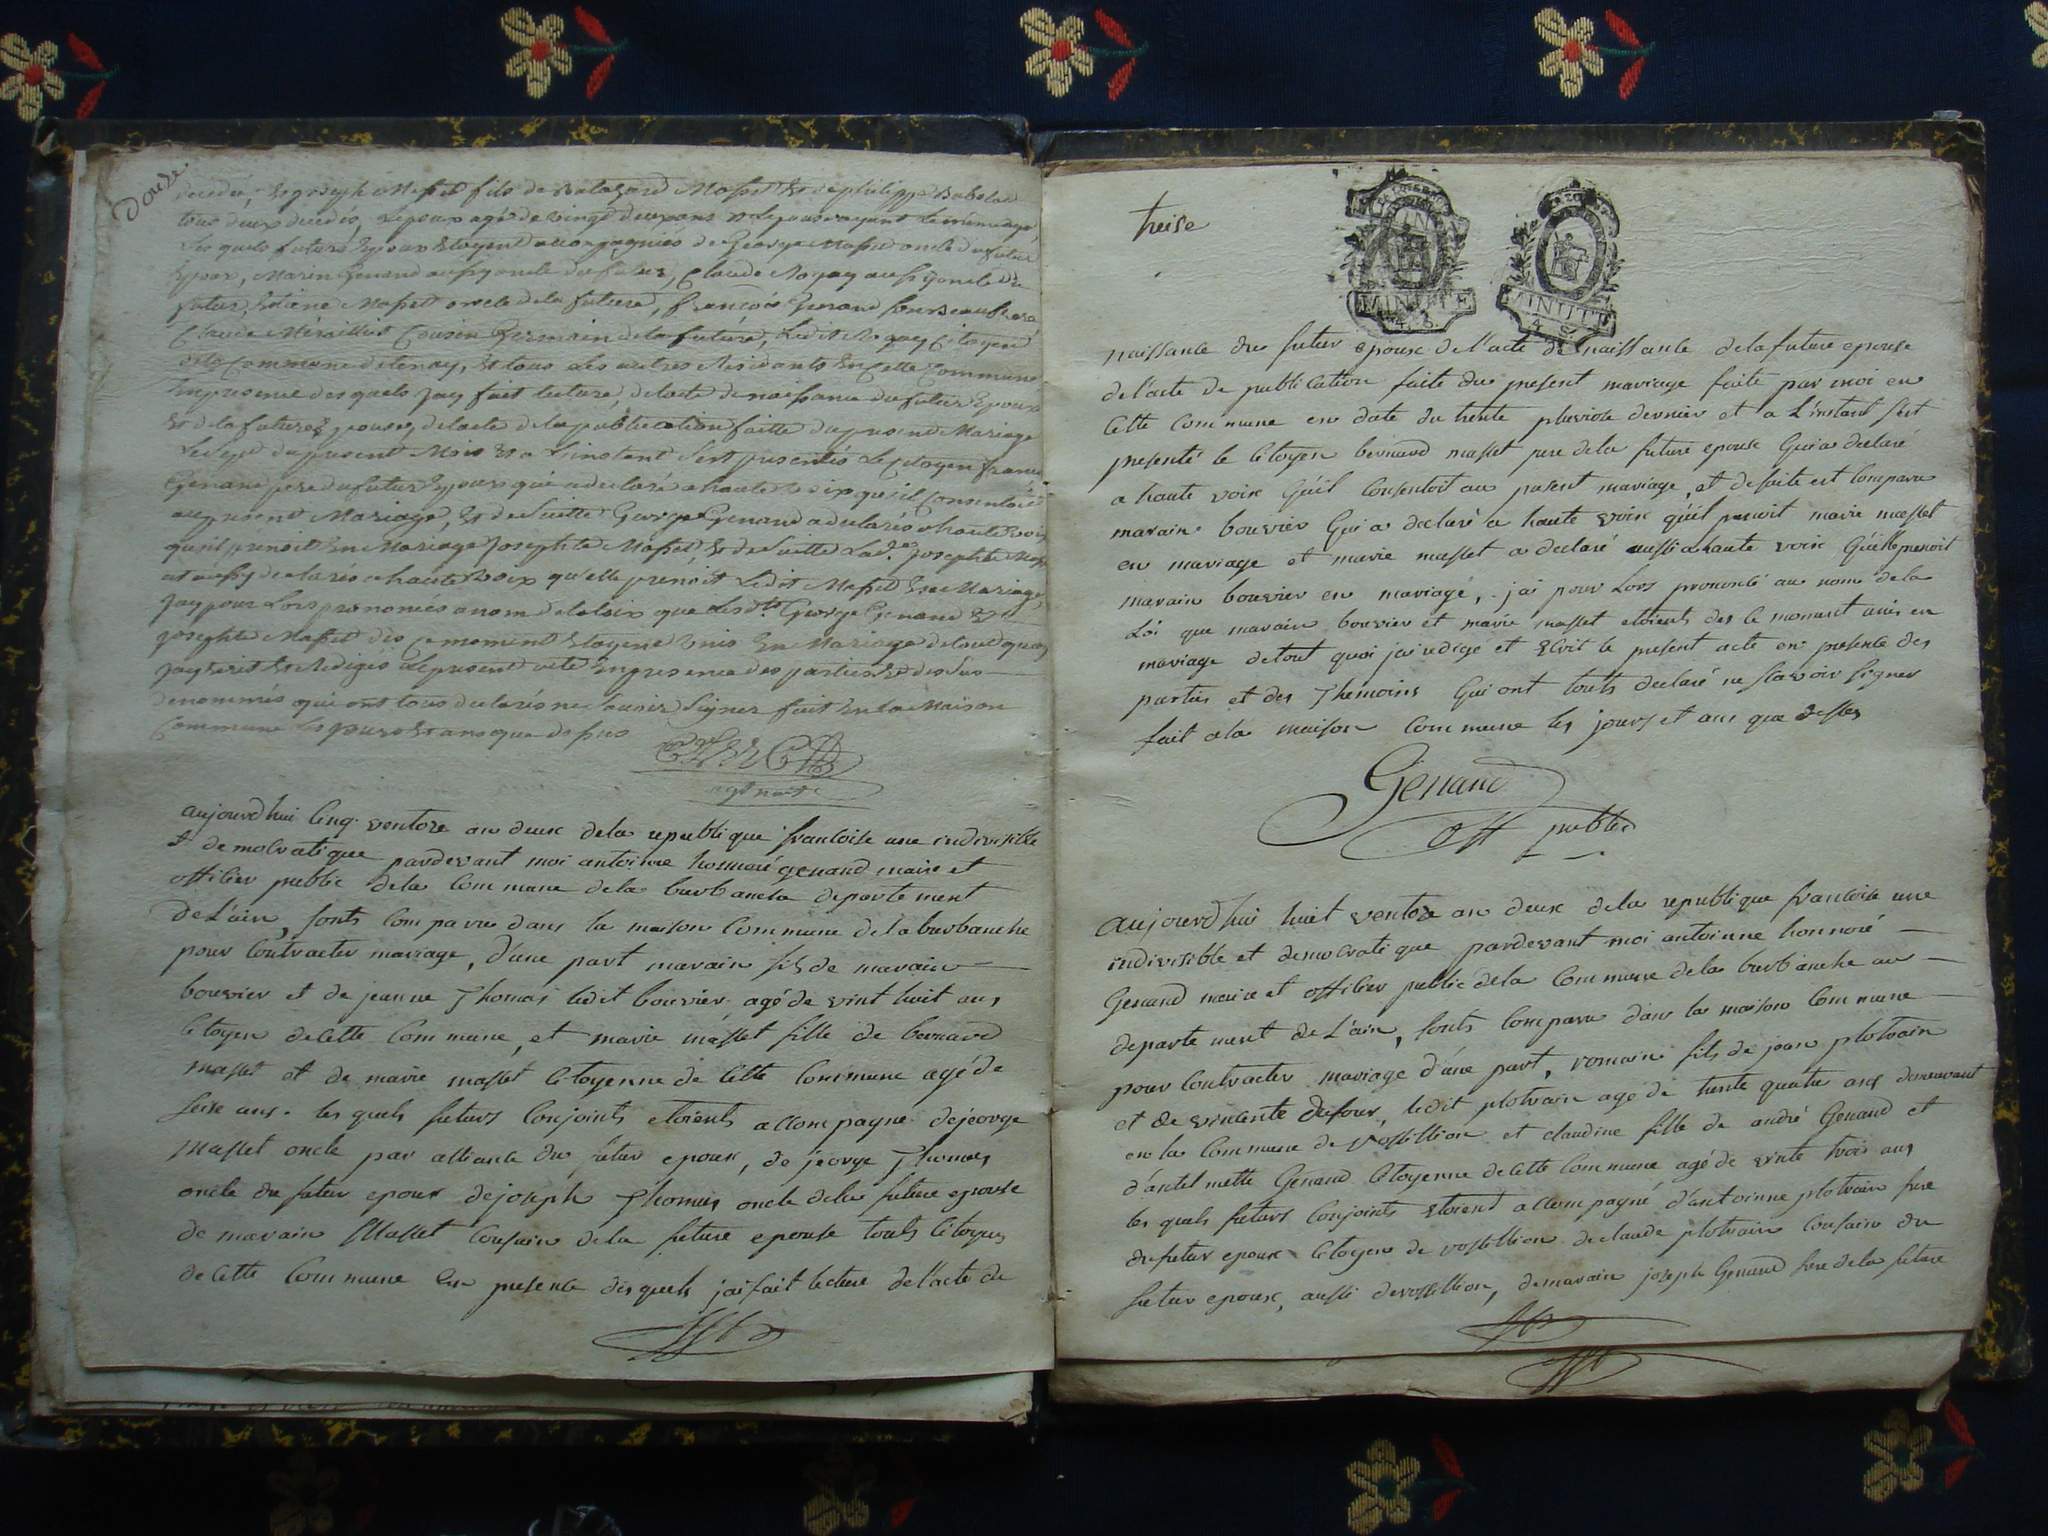 Douse
fils de Balazard Masset et de philippe
tous deux decedes, agé de vingt deux ans
Les quels futurs Epoux Etoyent accompagniés de George Masset oncle du futur
Epoux, Marin Genand aussy oncle du futur, Claude Royay aussy oncle du
futur, Etiene Masset oncle de la future, françois Genand
Claude Cousin Germain de la future, Ledit Royay Citoyen
de la Commune detenay, Et tous Les autres Residants En Cette Commune
En presence des quels Jay fait lecture, de lacte de naissance du futur Epoux
Et de la future Epouse, de lacte de la publication faitte du present Mariage
Le sept du present Mois Et a Linstant sest presentés Le Citoyen francois
Genand pere du futur Epoux qui a declaré a haute voix qu'il Consentoit
au present Mariage, Et de suitte George Genand a declarés a haute voix
qu'il prenoit En Mariage Josephte Masset Et de suitte Lad.e Josephte
aussy declarés a haute voix qu'elle prenoit Ledit Masset En Mariage
Jay pour Lors prononcés a nom de la loix que Lesdts George Genand Et
Josephte Masset dès ce moment Etoyent unis En Mariage detout quoy
Jay Ecrit Et Redigés Le present acte En presence des parties Et des sus
denommés qui ont tous declarés ne savoir signer fait En la Maison
Commune Les jours Et ans que dessus
aujourd'hui Cinq ventoze an deux dela republique francoise une indivisible
et democratique pardevant moi antoinne honnoré genand maire et
officier public dela Commune dela burbanche departement
de L'ain, sonts Comparu dans la maison Commune dela burbanche
pour Contracter mariage, d'une part marain fils de marain
bouvier et de jeanne Thomas ledit bouvier agé de vint huit ans
Citoyen de Cette Commune, et marie masset fille de bernard
masset et de marie masset Citoyenne de Cette Commune agé de
seise ans. les quels futurs Conjoints etoients accompagné dejeorge
Masset oncle par alliance du futur epoux, de jeorge Thomas
oncle du futur epoux dejoseph Thomas oncle dela future epouse
de marain Masset Cousain dela future epouse touts Citoyens
de Cette Commune En presence des quels jai fait lecture de l'acte de
treise
MINUTE
MINUTE
naissance du futur epoux de l'acte de naissance dela future epouse
de l'acte de publication faite du present mariage faite par moi en
Cette Commune en date du trente pluviose dernier et a L'instant sest
presenté le Citoyen bernard masset pere dela future epouse Qui a declaré
a haute voix Qu'il Consentoit au present mariage, et desuite est Comparu
marain bouvier Qui a declaré a haute voix qu'il prenoit marie masset
en mariage et marie masset a declaré aussi a haute voix Qu'elle prenoit
marain bouvier en mariage, jai pour Lors prononcé au nom de la
Loi que marain bouvier et marie masset etoients des ce moment unis en
mariage detout quoi jai redigé et Ecrit le present acte en presence des
parties et des Themoins Qui ont touts declaré ne scavoir signer
fait ala maison Commune les jours et ans que dessus
Genand
off public
aujourd'hui huit ventoze an deux dela republique francoise une
indivisible et democratique pardevant moi antoinne honnoré
Genand maire et officier public dela Commune dela burbanche au
departement de L'ain, sonts Comparu dans la maison Commune
pour Contracter mariage d'une part, romain fils de jean plotvain
et de vincente dufour, ledit plotvain agé de trente quatre ans demeurant
en la Commune de vossillion et claudine fille de andré Genand et
d'antelmette Genand Citoyenne de Cette Commune agé de vinte trois ans
les quels futurs Conjoints Etoient accompagné d'antoinne plotvain frere
du futur epoux Citoyen de vossillion declaude plotvain Cousain du
futur epoux, aussi devossillion, demarain joseph Genand frere dela future